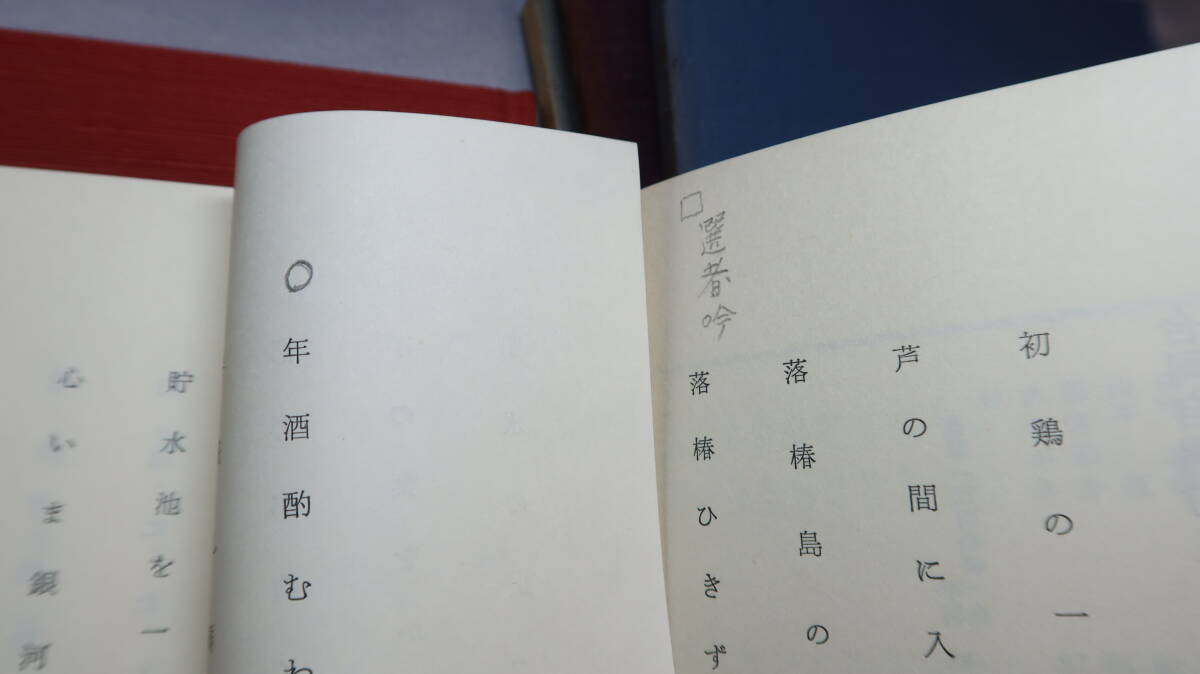 初鶏の一
芦の間に入
落椿島の
落椿ひきず
□選者吟
○年酒酌むわ
貯水池を一
心いま銀河